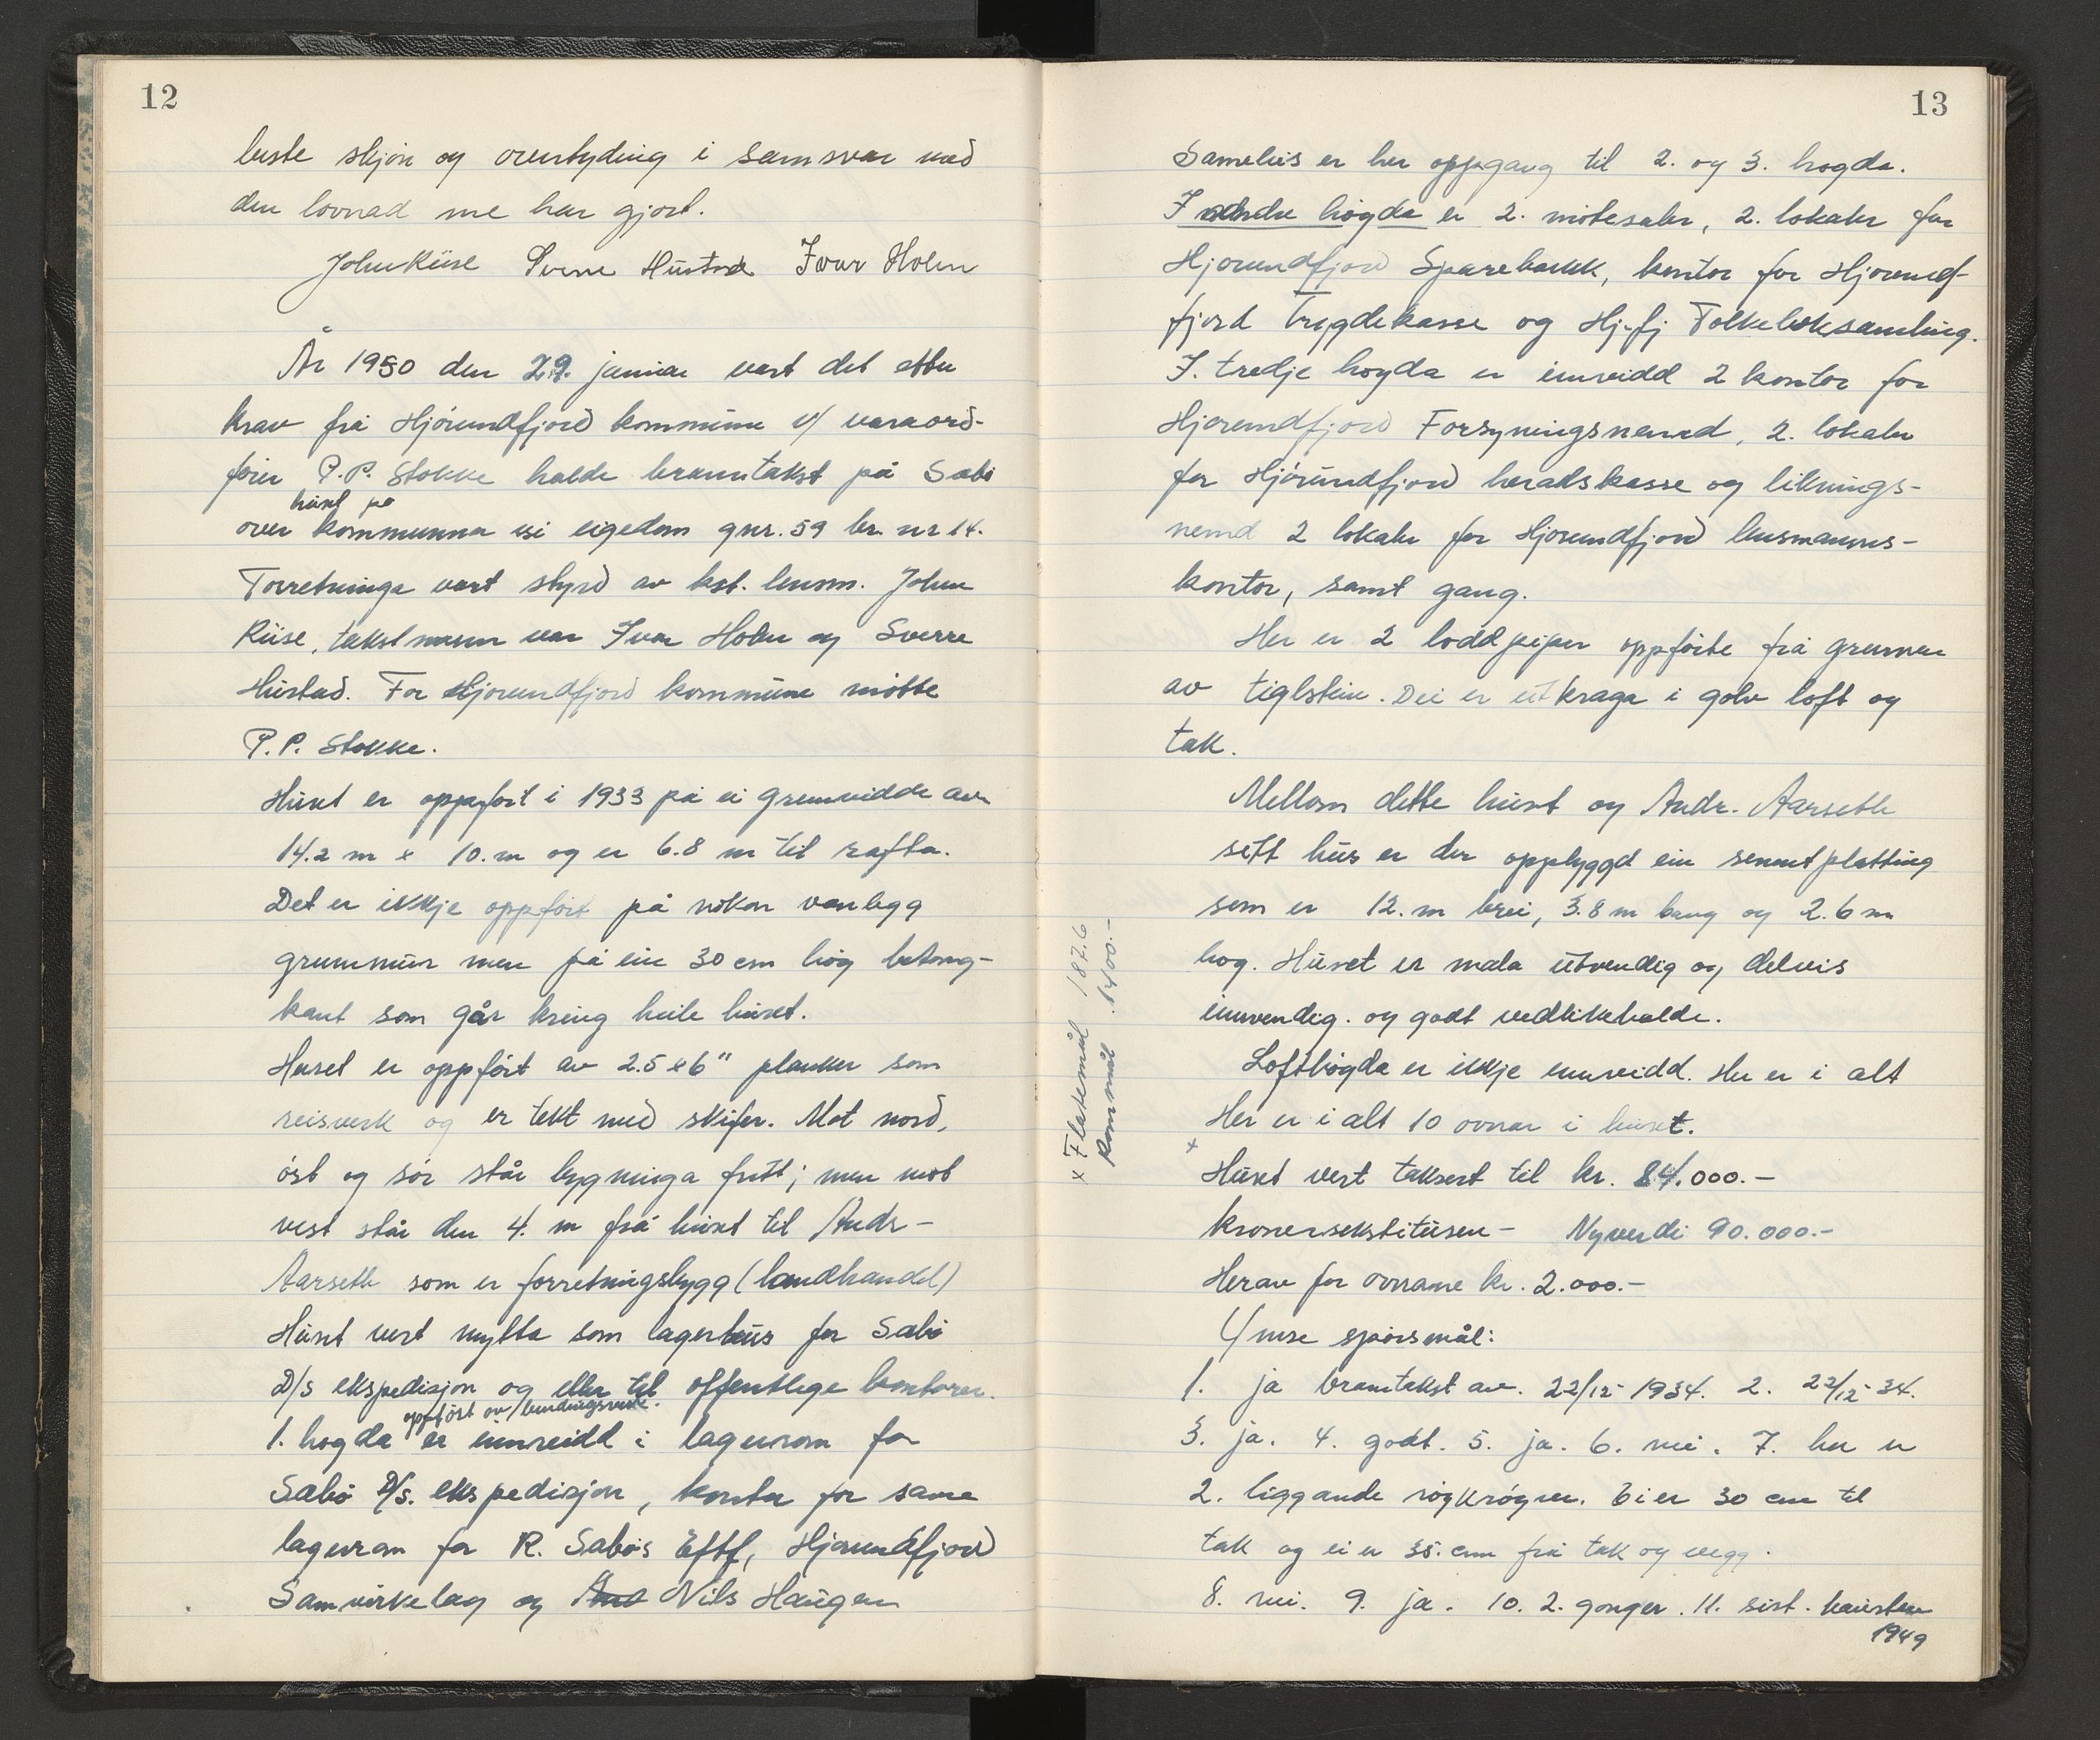 12
beste skjøn og overtyding i samsvar med
den lovnad me har gjort.
John Riise Sverre Hustad Ivar Holen
År 1950 den 29. januar vart det etter
krav frå Hjørundfjord kommune v/ varaord-
førar P.P. Stokke halde branntakst på Sæbø
huset på
over kommunna si eigedom gnr. 59 br. nr 14.
Forretninga vart styrd av kst. lensm. John
Riise, takstmenn var Ivar Holen og Sverre
Hustad. For Hjørundfjord kommune møtte
P.P. Stokke.
Huset er oppført i 1933 på ei grunnvidde av
14.2 m x 10.m og er 6.8 m til rafta.
Det er ikkje oppført på nokon vanlegg
grunnmur men på ein 30 cm høg betong-
kant som går kring heile huset.
Huset er oppført av 2.5 x 6" planker som
reisverk og er tekt med skifer. Mot nord,
øst og sør står bygninga fritt; men mot
vest står den 4. m frå huset til Andr-
Aarseth som er forretningsbygg (landhandel)
Huset vert nytta som lagerhus for Sæbø
D/S ekspedisjon og eller til offentlege kontorer.
oppført av bindingsverk.
1. høgda er innreidd i lagerrom for
Sæbø D/S. ekspedisjon, kontor for same
lagerrom for R. Sæbøs Eftf, Hjørundfjord
Samvirkelag og And Nils Haugen
13
Sameleis er her oppgang til 2. og 3. høgda.
I andre høgda er 2. møtesaler, 2. lokaler for
Hjørundfjord Sparebankk, kontor for Hjørund-
fjord Trygdekasse og Hj.fj Folkeboksamling.
I. tredje høgda er innreidd 2 kontor for
Hjørundfjord Forsyningsnemnd, 2. lokaler
for Hjørundfjord heradskasse og liknings-
nemd 2 lokaler for Hjørundfjord lensmanns-
kontor, samt gang.
Her er 2 loddpiper oppførte frå grunnen
av tiglstein. Dei er utkraga i golv loft og
tak.
Mellom dette huset og Andr. Aarseth
sitt hus er der oppbyggd ein sementplatting
som er 12. m brei, 3.8 m lang og 2.6 m
høg. Huset er mala utvendig og delvis
innvendig. og godt vedlikehalde.
Lofthøgda er ikkje innreidd. Her er i alt
Her er i alt 10 ovnar i huset.
x
Huset vert taksert til kr. 84.000.-
Kronersekstitusen- Nyverdi 90.000.-
Herav for ovnane kr. 2.000.-
Ymse spørsmål:
1. ja branntakst av. 22/12- 1934. 2. 22/12- 34.
3. ja. 4. godt. 5. ja. 6. nei. 7. her er
2. liggande røykrøyrer. Ei er 30 cm til
tak og ei er 35. cm frå tak og vegg.
8. nei. 9. ja. 10. 2. gonger. 11. sist. hausten
1949
x Flatemål 187.6
Rommål 1400.-